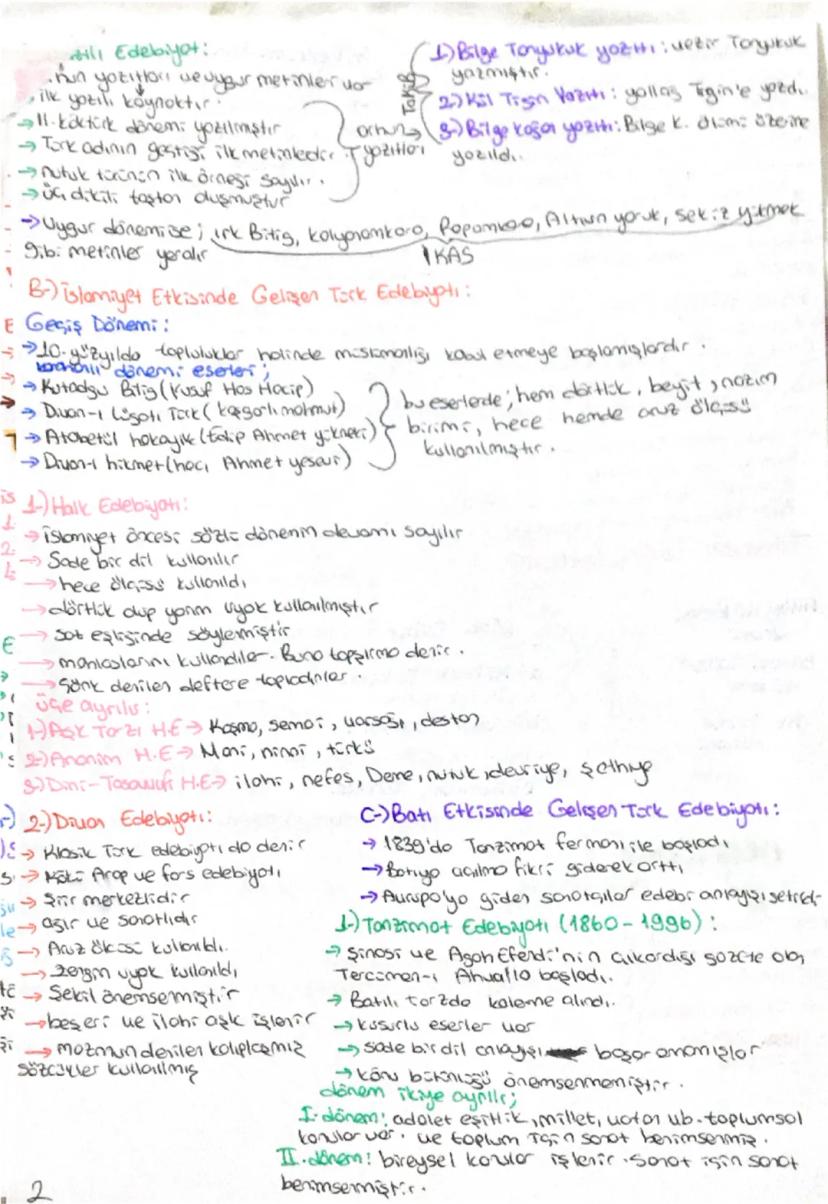 zılı Edebiyat:
hun yazıtları ve uygur metinler var
ilk yazılı kaynaktır.
→ II. köktürk dönemi yazılmıştır
→ Türk adının geçtiği ilk metinlerdir.
→ nutuk türünün ilk örneği sayılır.
→ üç dikili taştan oluşmuştur
orhun yazıtları
1-) Bilge Tonyukuk yazıtı: vezir Tonyukuk
yazmıştır.
2-) Kül Tigin Yazıtı: yollağ Tigin'e yazdı.
3-) Bilge kağan yazıtı: Bilge K. ölümü üzerine
yazıldı.
→ Uygur dönemi ise; ırk Bitig, kalyanamkara, Papamkara, Altun yaruk, sekiz yükmek
gibi metinler yeralır
IKAS
B-) islamiyet Etkisinde Gelişen Türk Edebiyatı:
Geçiş Dönemi:
→ 10. yüzyılda topluluklar halinde müslümanlığı kabul etmeye başlamışlardır.
karahanlı dönemi eserleri;
→ Kutadgu Bilig (Yusuf Has Hacip)
→ Divan-ı Lügati Türk (kaşgarlı mahmut)
→ Atabetül hakayık (Edip Ahmet yükneki)
→ Divan-ı hikmet (hacı Ahmet yesevi)
bu eserlerde; hem dörtlük, beyit, nazım
birimi, hece hemde aruz ölçüsü
kullanılmıştır.
1-) Halk Edebiyatı:
→ islamiyet öncesi sözlü dönemin devamı sayılır
→ Sade bir dil kullanılır
→ hece ölçüsü kullanıldı
→ dörtlük olup yarım uyak kullanılmıştır
→ saz eşliğinde söylemiştir
→ mahlaslarını kullandılar. Buna tapşırma denir.
→ Cönk denilen deftere topladılar.
üçe ayrılır:
1-) Aşk Tarzı H.E → Koşma, semai, varsağı, destan
2-) Anonim H.E → Mani, ninni, türkü
3-) Dini-Tasavvuf H.E → ilahi, nefes, Deme, nutuk, devriye, şathiye
2-) Divan Edebiyatı:
→ Klasik Türk edebiyatı da denir
→ Kökü Arap ve fars edebiyatı
→ Şiir merkezlidir
→ ağır ve sanatlıdır
→ Aruz ölçüsü kullanıldı.
→ zengin uyak kullanıldı
→ Şekil önemsemiştir
→ beşeri ve ilahi aşk işlenir
→ mazmun denilen kalıplaşmış
sözcükler kullanılmış
C-) Batı Etkisinde Gelişen Türk Edebiyatı:
→ 1839'da Tanzimat fermanı ile başladı
→ Batıya açılma fikri giderek arttı
→ Avrupa'ya giden sanatçılar edebi anlayışı getirdi
1-) Tanzimat Edebiyatı (1860-1996):
→ Şinasi ve Agah Efendi'nin çıkardığı gazete olan
Tercüman-ı Ahvalla başladı.
→ Batılı tarzda kaleme alındı.
→ kusurlu eserler var
→ sade bir dil anlayışı başaramamışlar
→ konu bütünlüğü önemsenmemiştir.
dönem ikiye ayrılır;
I. dönem: adalet eşitlik, millet, vatan vb. toplumsal
konular var. ve toplum için sanat benimsemiş.
II. dönem: bireysel konular işlenir. Sanat için sanat
benimsemiştir.
2